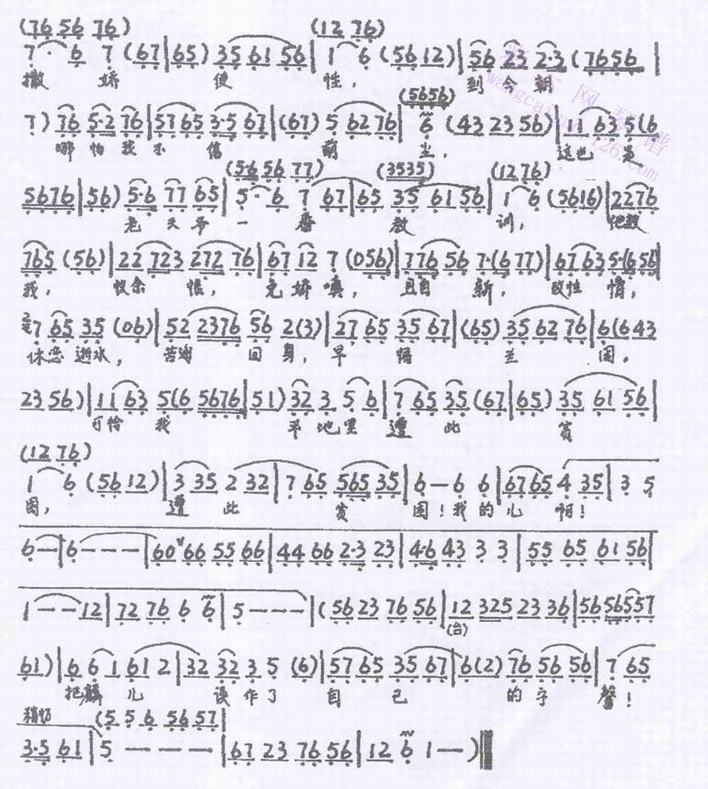 (76 56 76) (12 76)
7· 6 7 (67|65) 35 61 56|1 6 (56 12)|56 23 2·3 (7656|
撒 娇 使 性, 到 今 朝
(5656)
7) 76 5·2 76|57 65 3·5 67|(67) 5 62 76|6 (43 23 56)|11 63 5(6
哪 怕 我 不 信 前 尘. 这也 是
(56 56 77) (3535) (12 76)
5676|56) 5·6 77 65|5· 6 7 67|65 35 61 56|1 6 (5616)|2276
老 天 爷 一 番 教 训, 他教
765 (56)|22 723 272 76|67 12 7 (056)|776 56 7·(6 77)|67 63 5·(6 56|
我, 收余 恨, 免 娇 嗔, 且自 新, 改性 情,
7 65 35 (06)|52 2376 56 2(3)|27 65 35 67|(65) 35 62 76|6(643
休恋 逝水, 苦海 回 身, 早 悟 兰 因.
23 56)|11 63 5(6 5676|51) 32 3 5 6|7 65 35 (67|65) 35 61 56|
可怜 我 平 地 里 遭 此 贫
(12 76)
1 6 (56 12)|3 35 2 32|7 65 565 35|6 — 6 6|6765 4 35|3 5
困, 遭 此 贫 困! 我 的 儿 啊!
6 —|6 — — —|60 66 55 66|44 66 2·3 23|46 43 3 3|55 65 61 56|
1 — — 12|72 76 6 6|5 — — —|(56 23 76 56|12 325 23 36|56 565557
(台)
61)|6 6 1 61 2|32 32 3 5 (6)|57 65 35 67|6(2) 76 56 56|7 65
把麟 儿 误 作 了 自 己 的 宁 馨!
稍切 (5 5 6 56 57|
3·5 61|5 — — —|67 23 76 56|12 6 1 —)‖